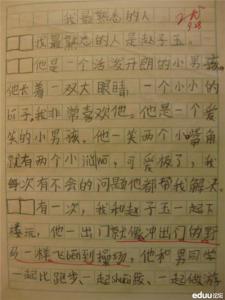 我最熟悉的人
我最熟悉的人是赵子玉。
他是一个活泼开朗的小男孩。
他长着一双大眼睛，一个小小的
鼻子我非常喜欢他。他是一个爱
笑的小男孩，他一笑两个小嘴角
就有两个小酒窝，可爱极了，我
每次有不会的问题他都帮我解决。
有一次，我和赵子玉一起下
楼玩，他一出门就像冲出们的野
马一样飞跑到操场，他和男同学
一起比跑步、一起 一起做游
eduu论坛